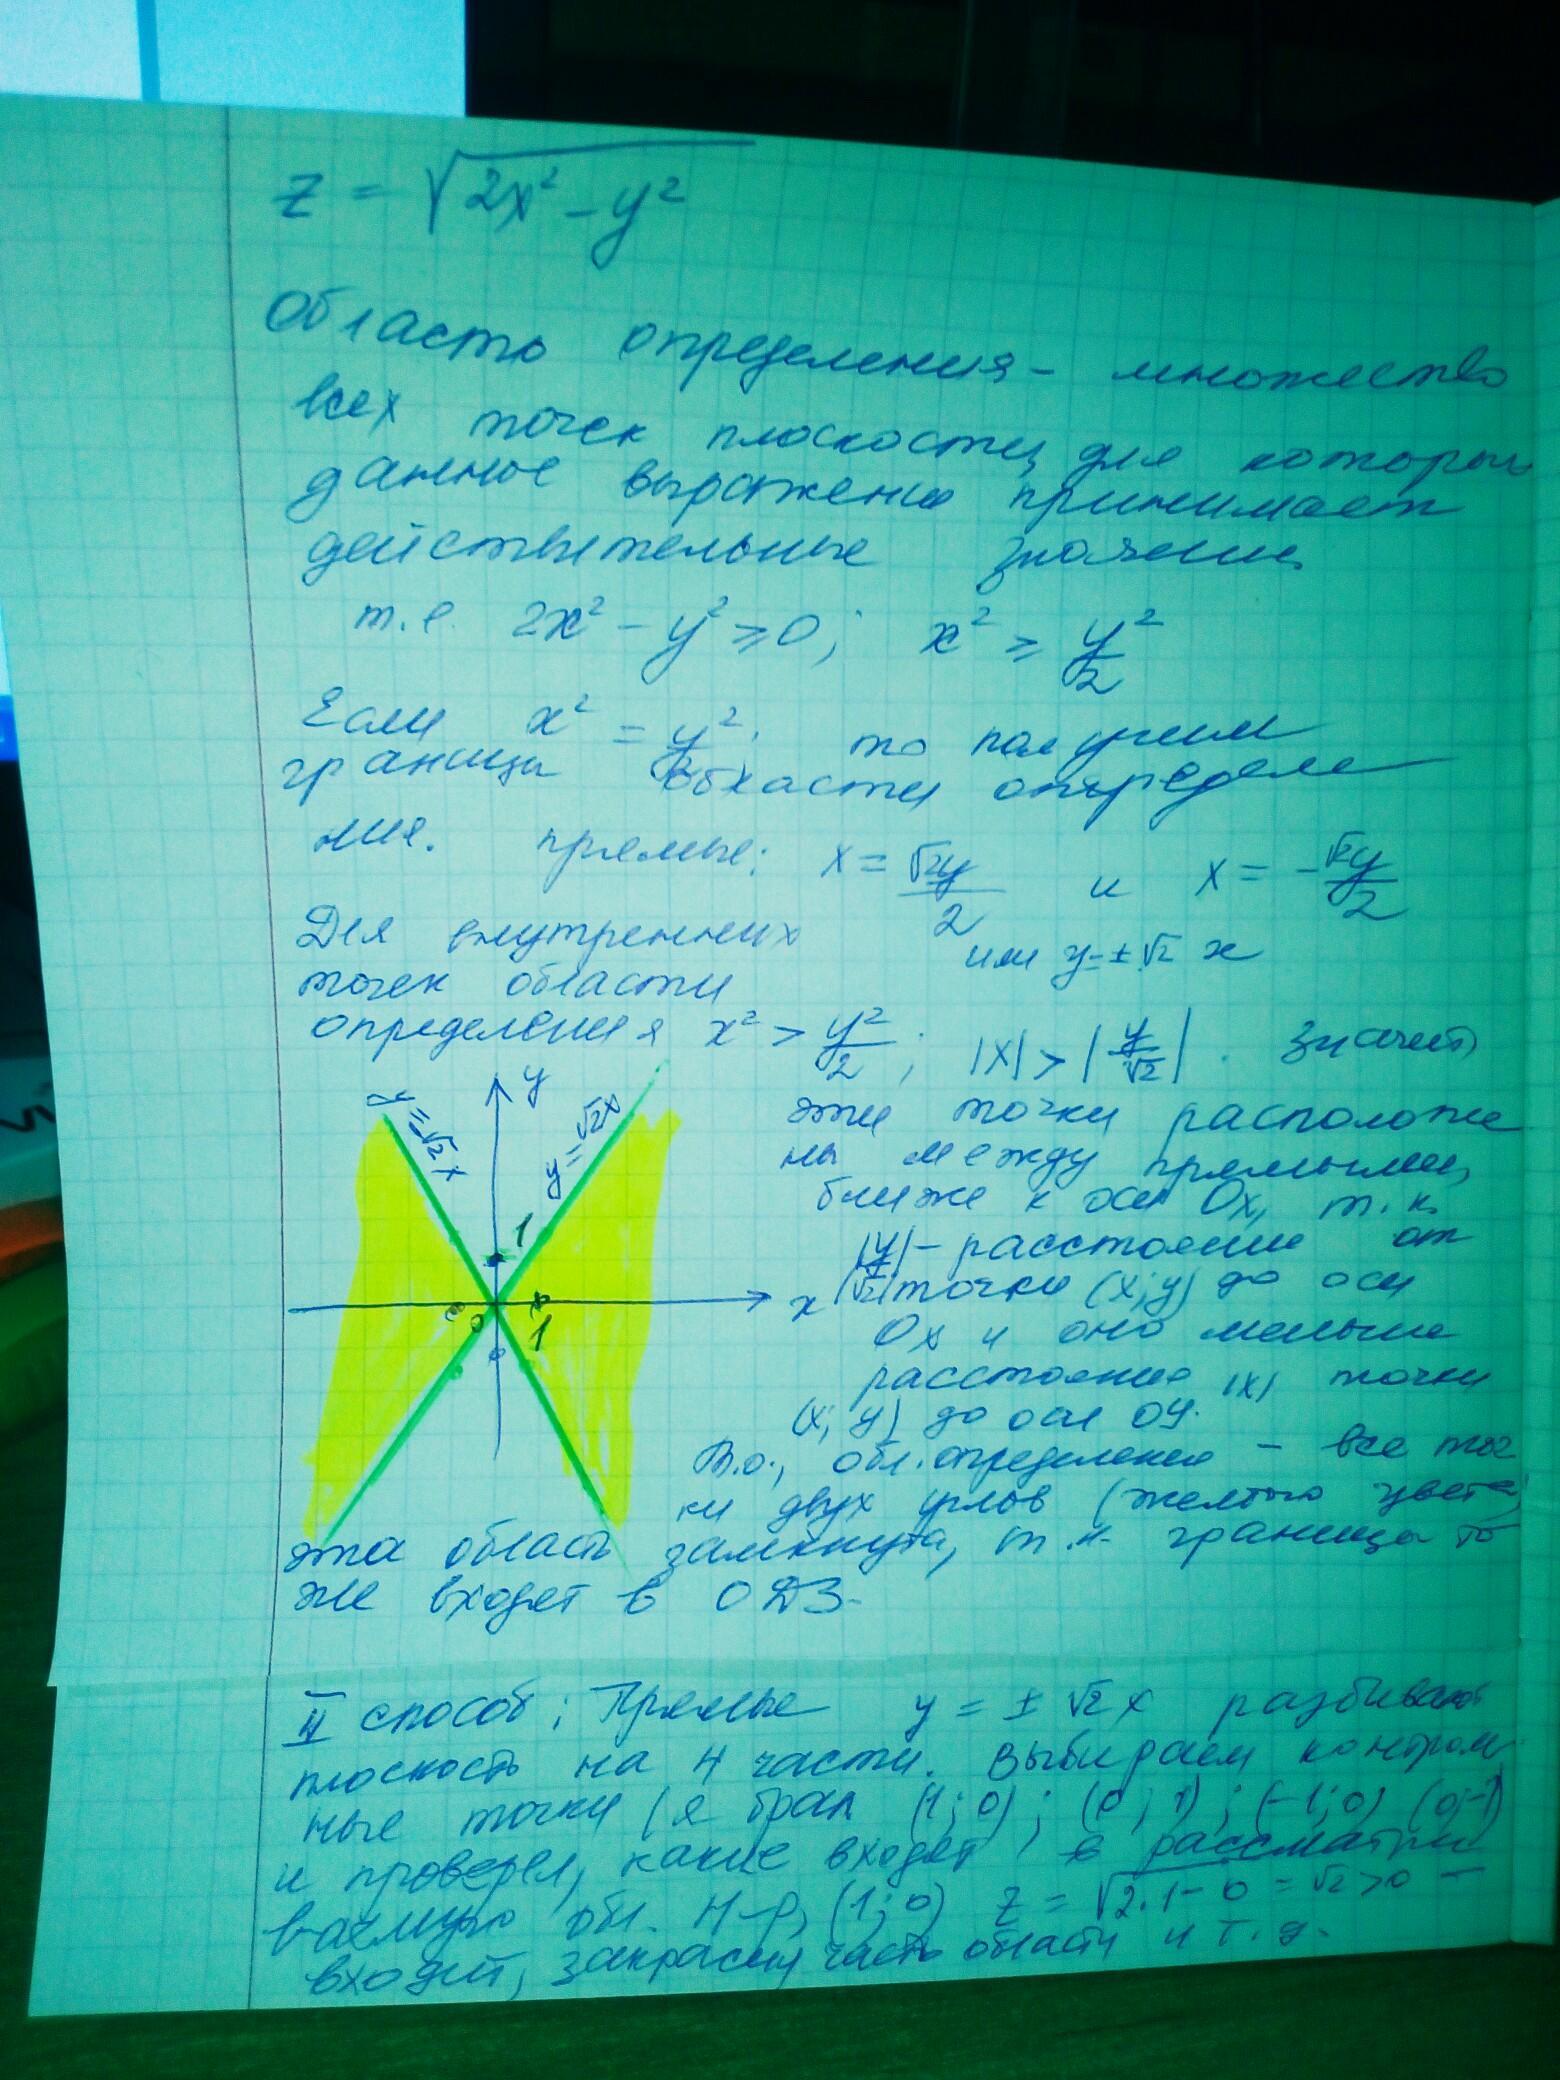 z = √(2x² - y²)
Область определения - множество
всех точек плоскости, для которых
данное выражение принимает
действительные значения
т.е. 2x² - y² ≥ 0; x² ≥ y²/2
Если x² = y²/2, то получим
границы области определе
ния. прямые: x = √2y/2 и x = -√2y/2
или y = ±√2 x
Для внутренних
точек области
определения x² > y²/2; |x| > |y/√2|. Значит,
эти точки расположе
ны между прямыми,
ближе к оси Ox, т.к.
|y/√2| - расстояние от
точки (x; y) до оси
Ox и оно меньше
расстояния |x| точки
(x; y) до оси Oy.
y
y = -√2x
y = √2x
1
x
0
1
Т.о., обл. определения - все точ
ки двух углов (желтого цвета)
эта область замкнута, т.к. границы то
же входят в ОДЗ.
II способ: Прямые y = ± √2 x разбивают
плоскость на 4 части. Выбираем контроль
ные точки (я брал (1; 0); (0; 1); (-1; 0) (0;-1)
и проверял, какие входят в рассматри
ваемую обл. Н-р, (1; 0) z = √(2·1 - 0) = √2 > 0 -
входит, закрасим часть области и т.д.